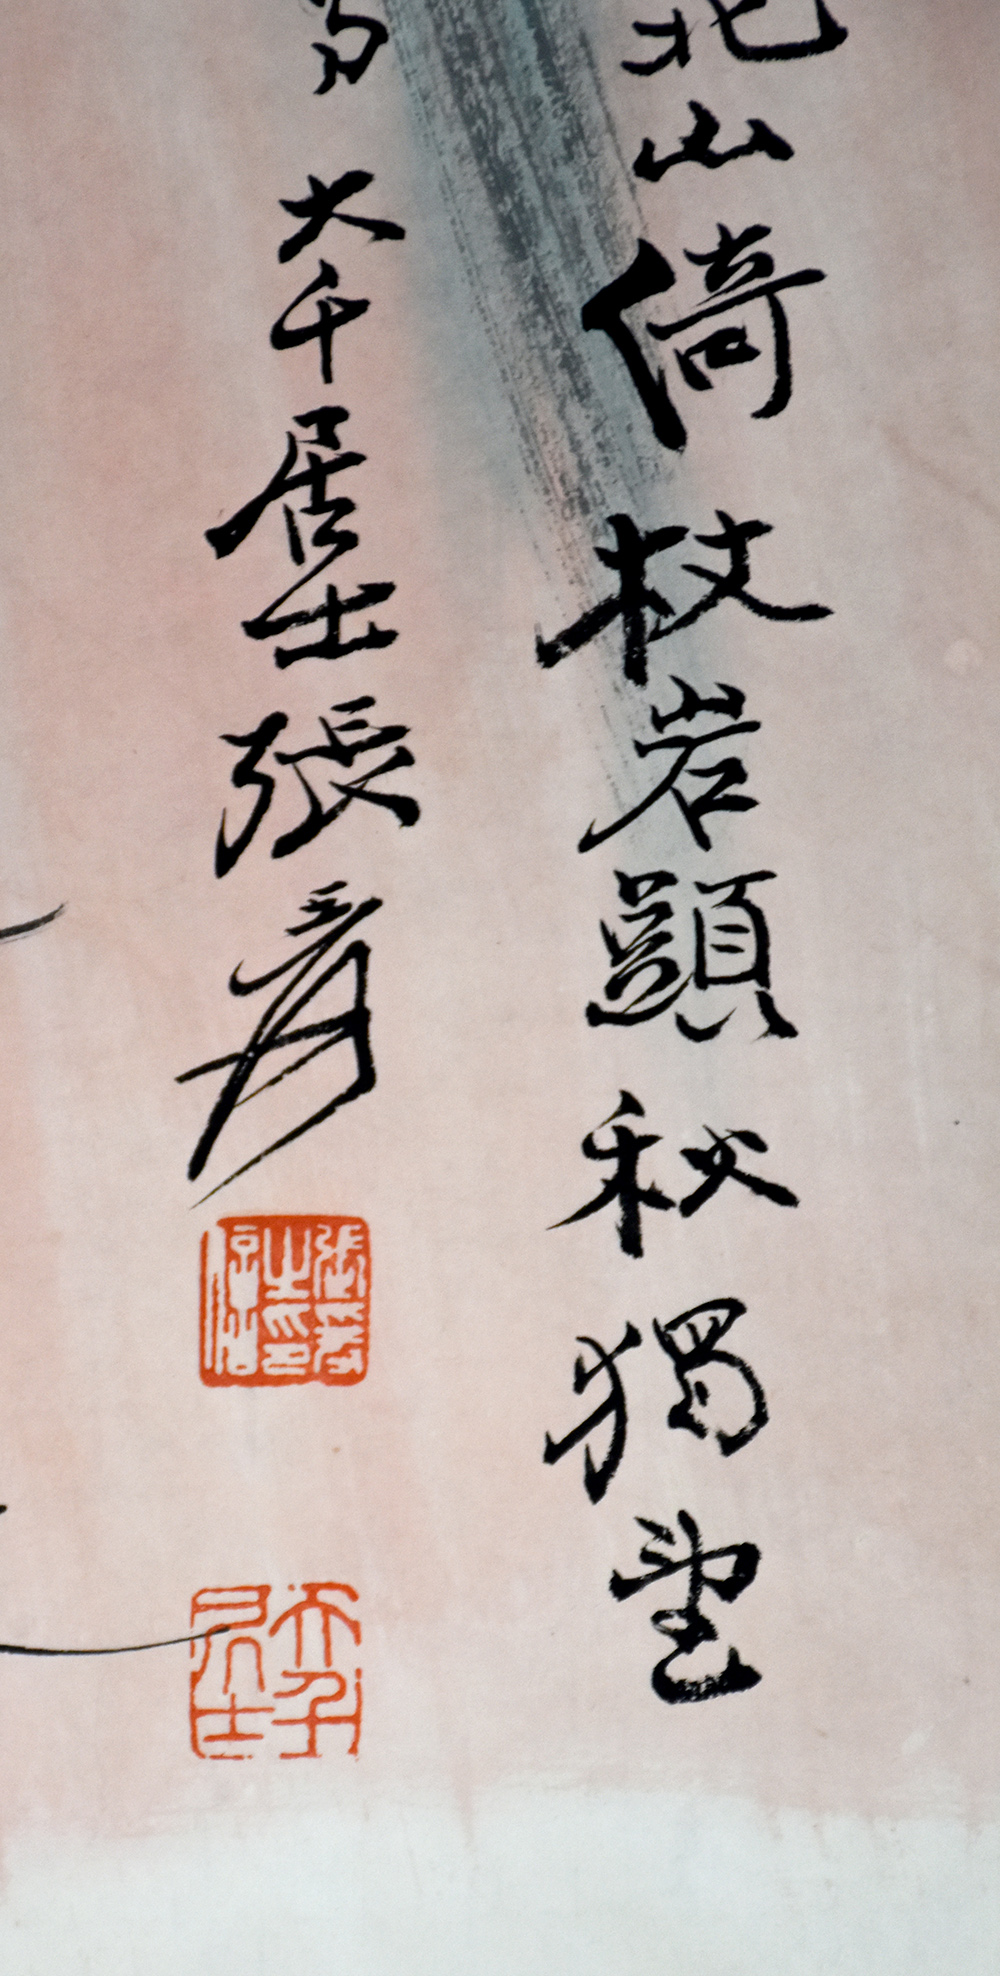 北山倚杖岩頭秋獨望
寫大千居士張爰
張爰之印信
大千居士